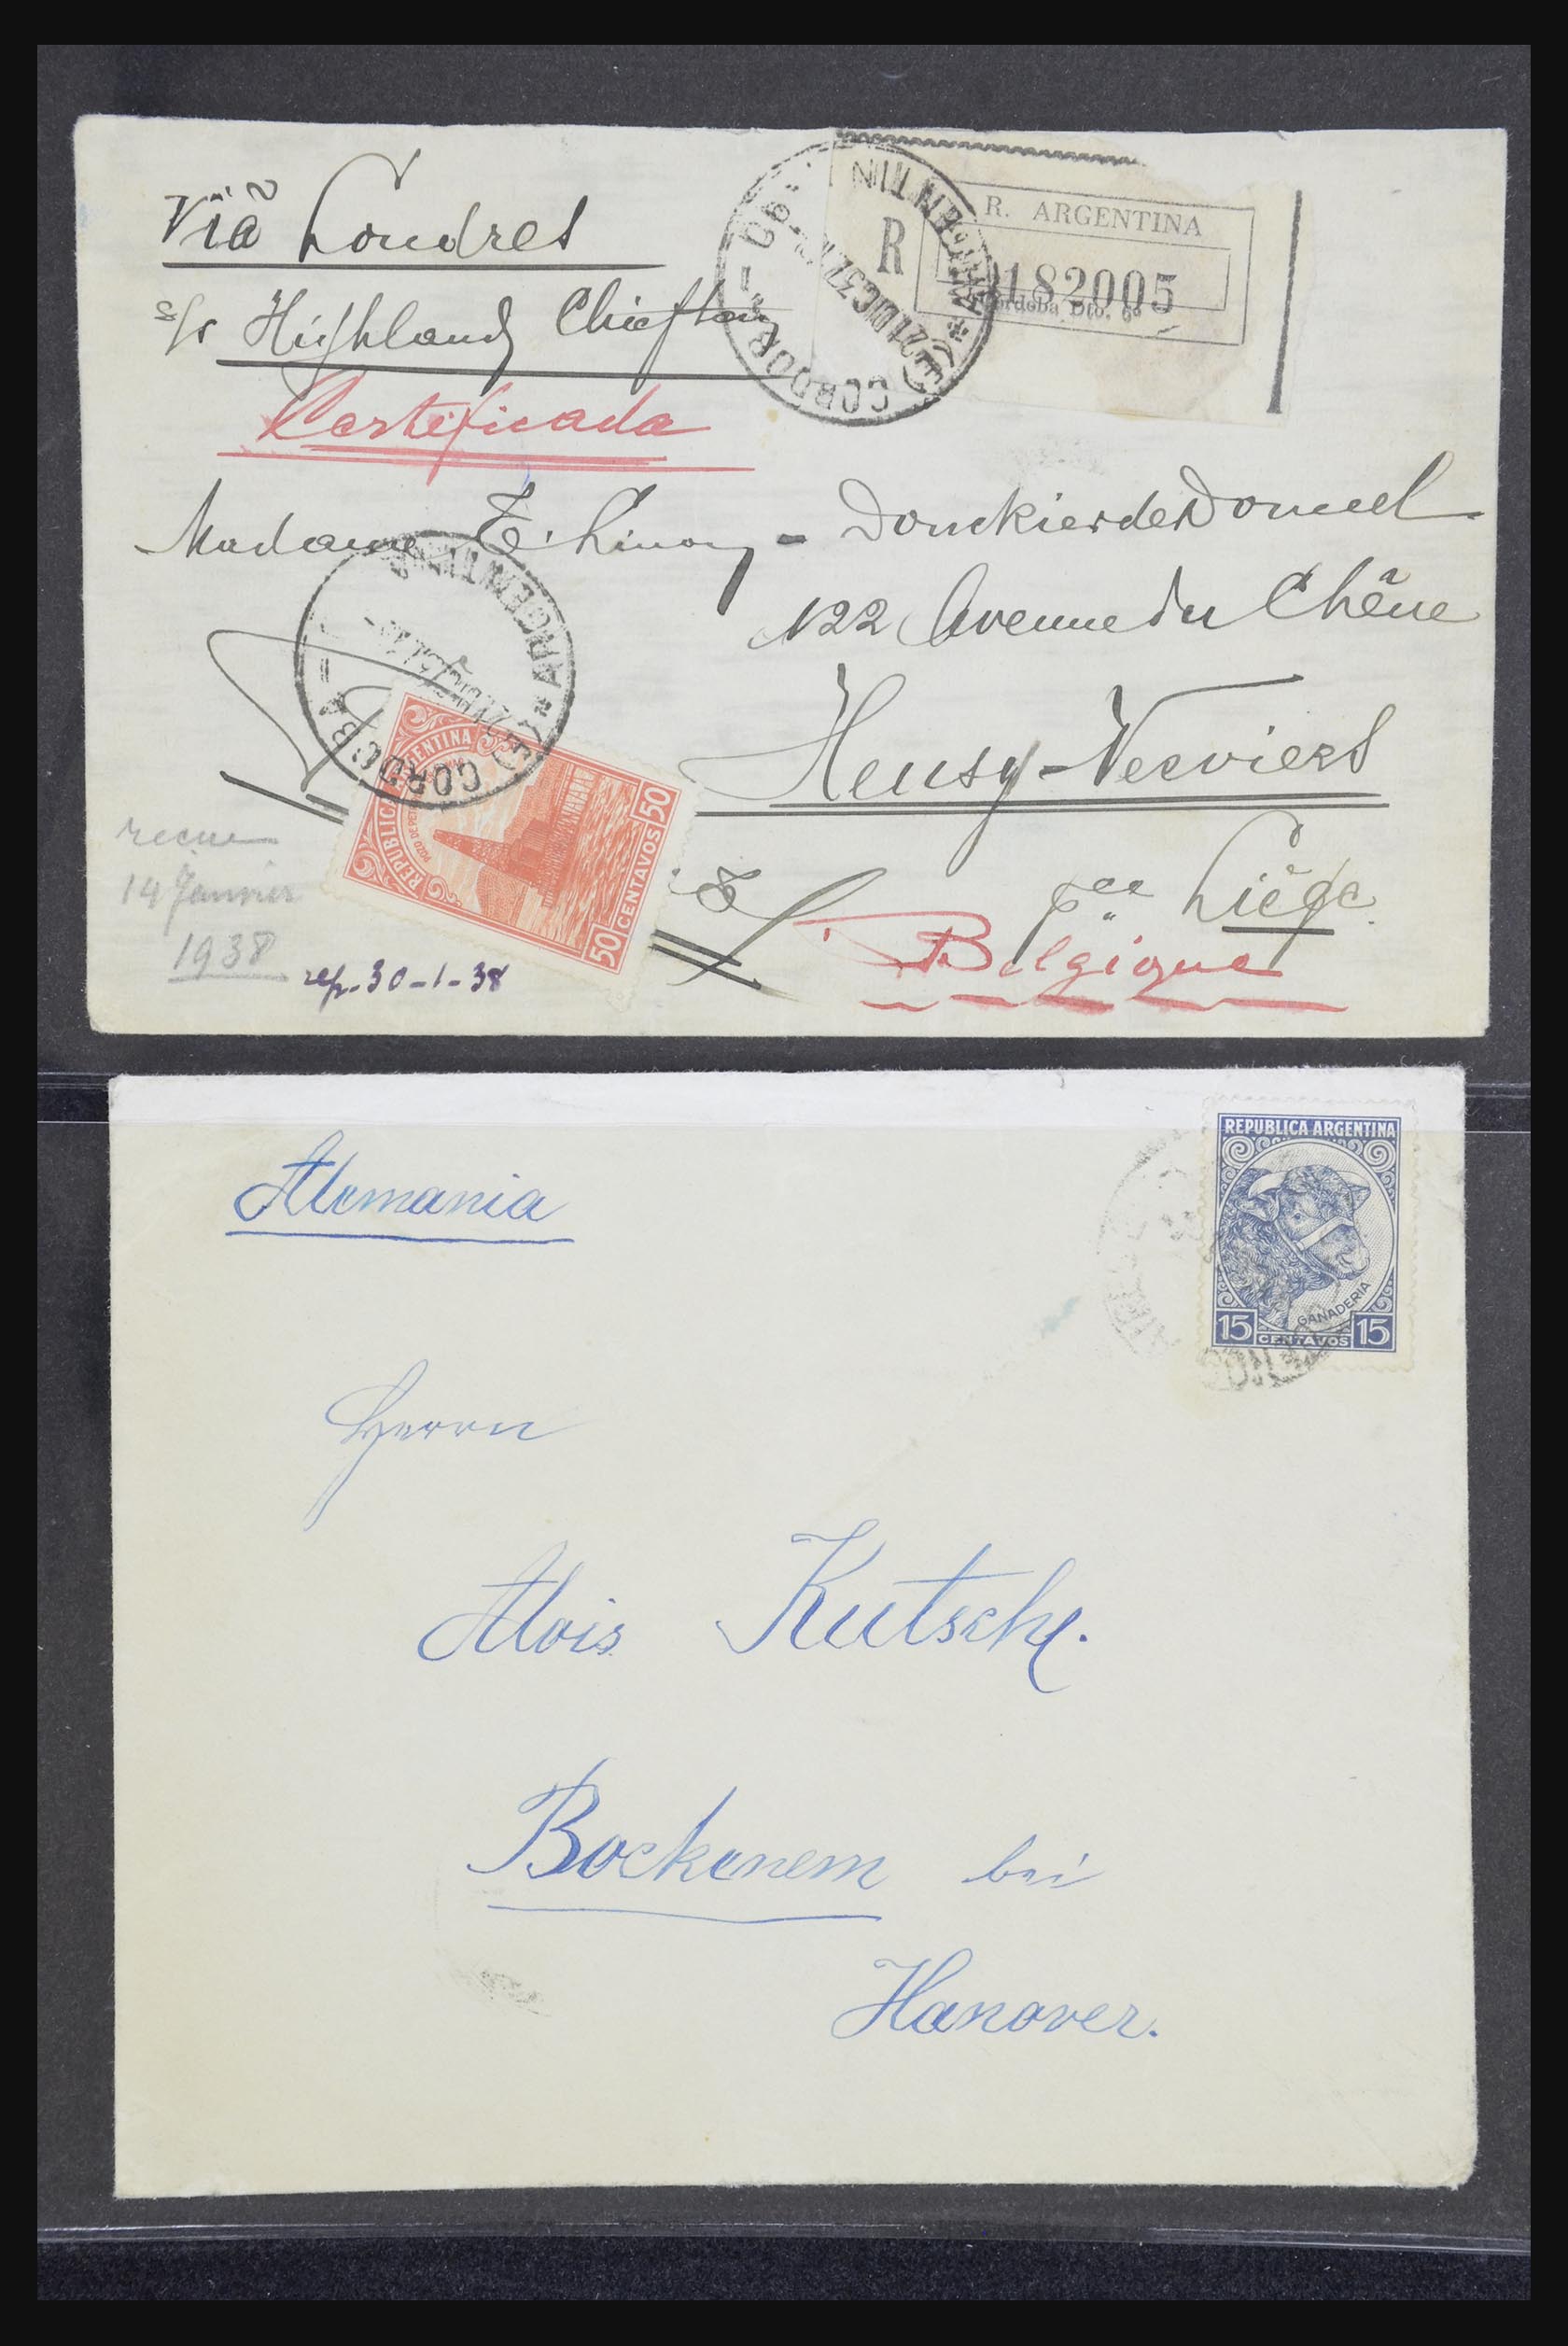 Viã Londres
R. ARGENTINA
R
182005
Córdoba Dto. 6º
s/s Highland Chieftain
CORDOBA
ARGENTINA
21 DIC 37
Certificada
Madame E. Limon - Donckier de Donceel
122 Avenue du Chêne
Heusy-Verviers
CORDOBA
ARGENTINA
REPUBLICA ARGENTINA
POZO DE PET
50 CENTAVOS 50
pce Liège
Belgique
recue
14 Janvier
1938
rep. 30-1-38
Alemania
REPUBLICA ARGENTINA
GANADERIA
15 CENTAVOS 15
Herrn
Alois Kutsche.
Bockenem bei
Hanover.